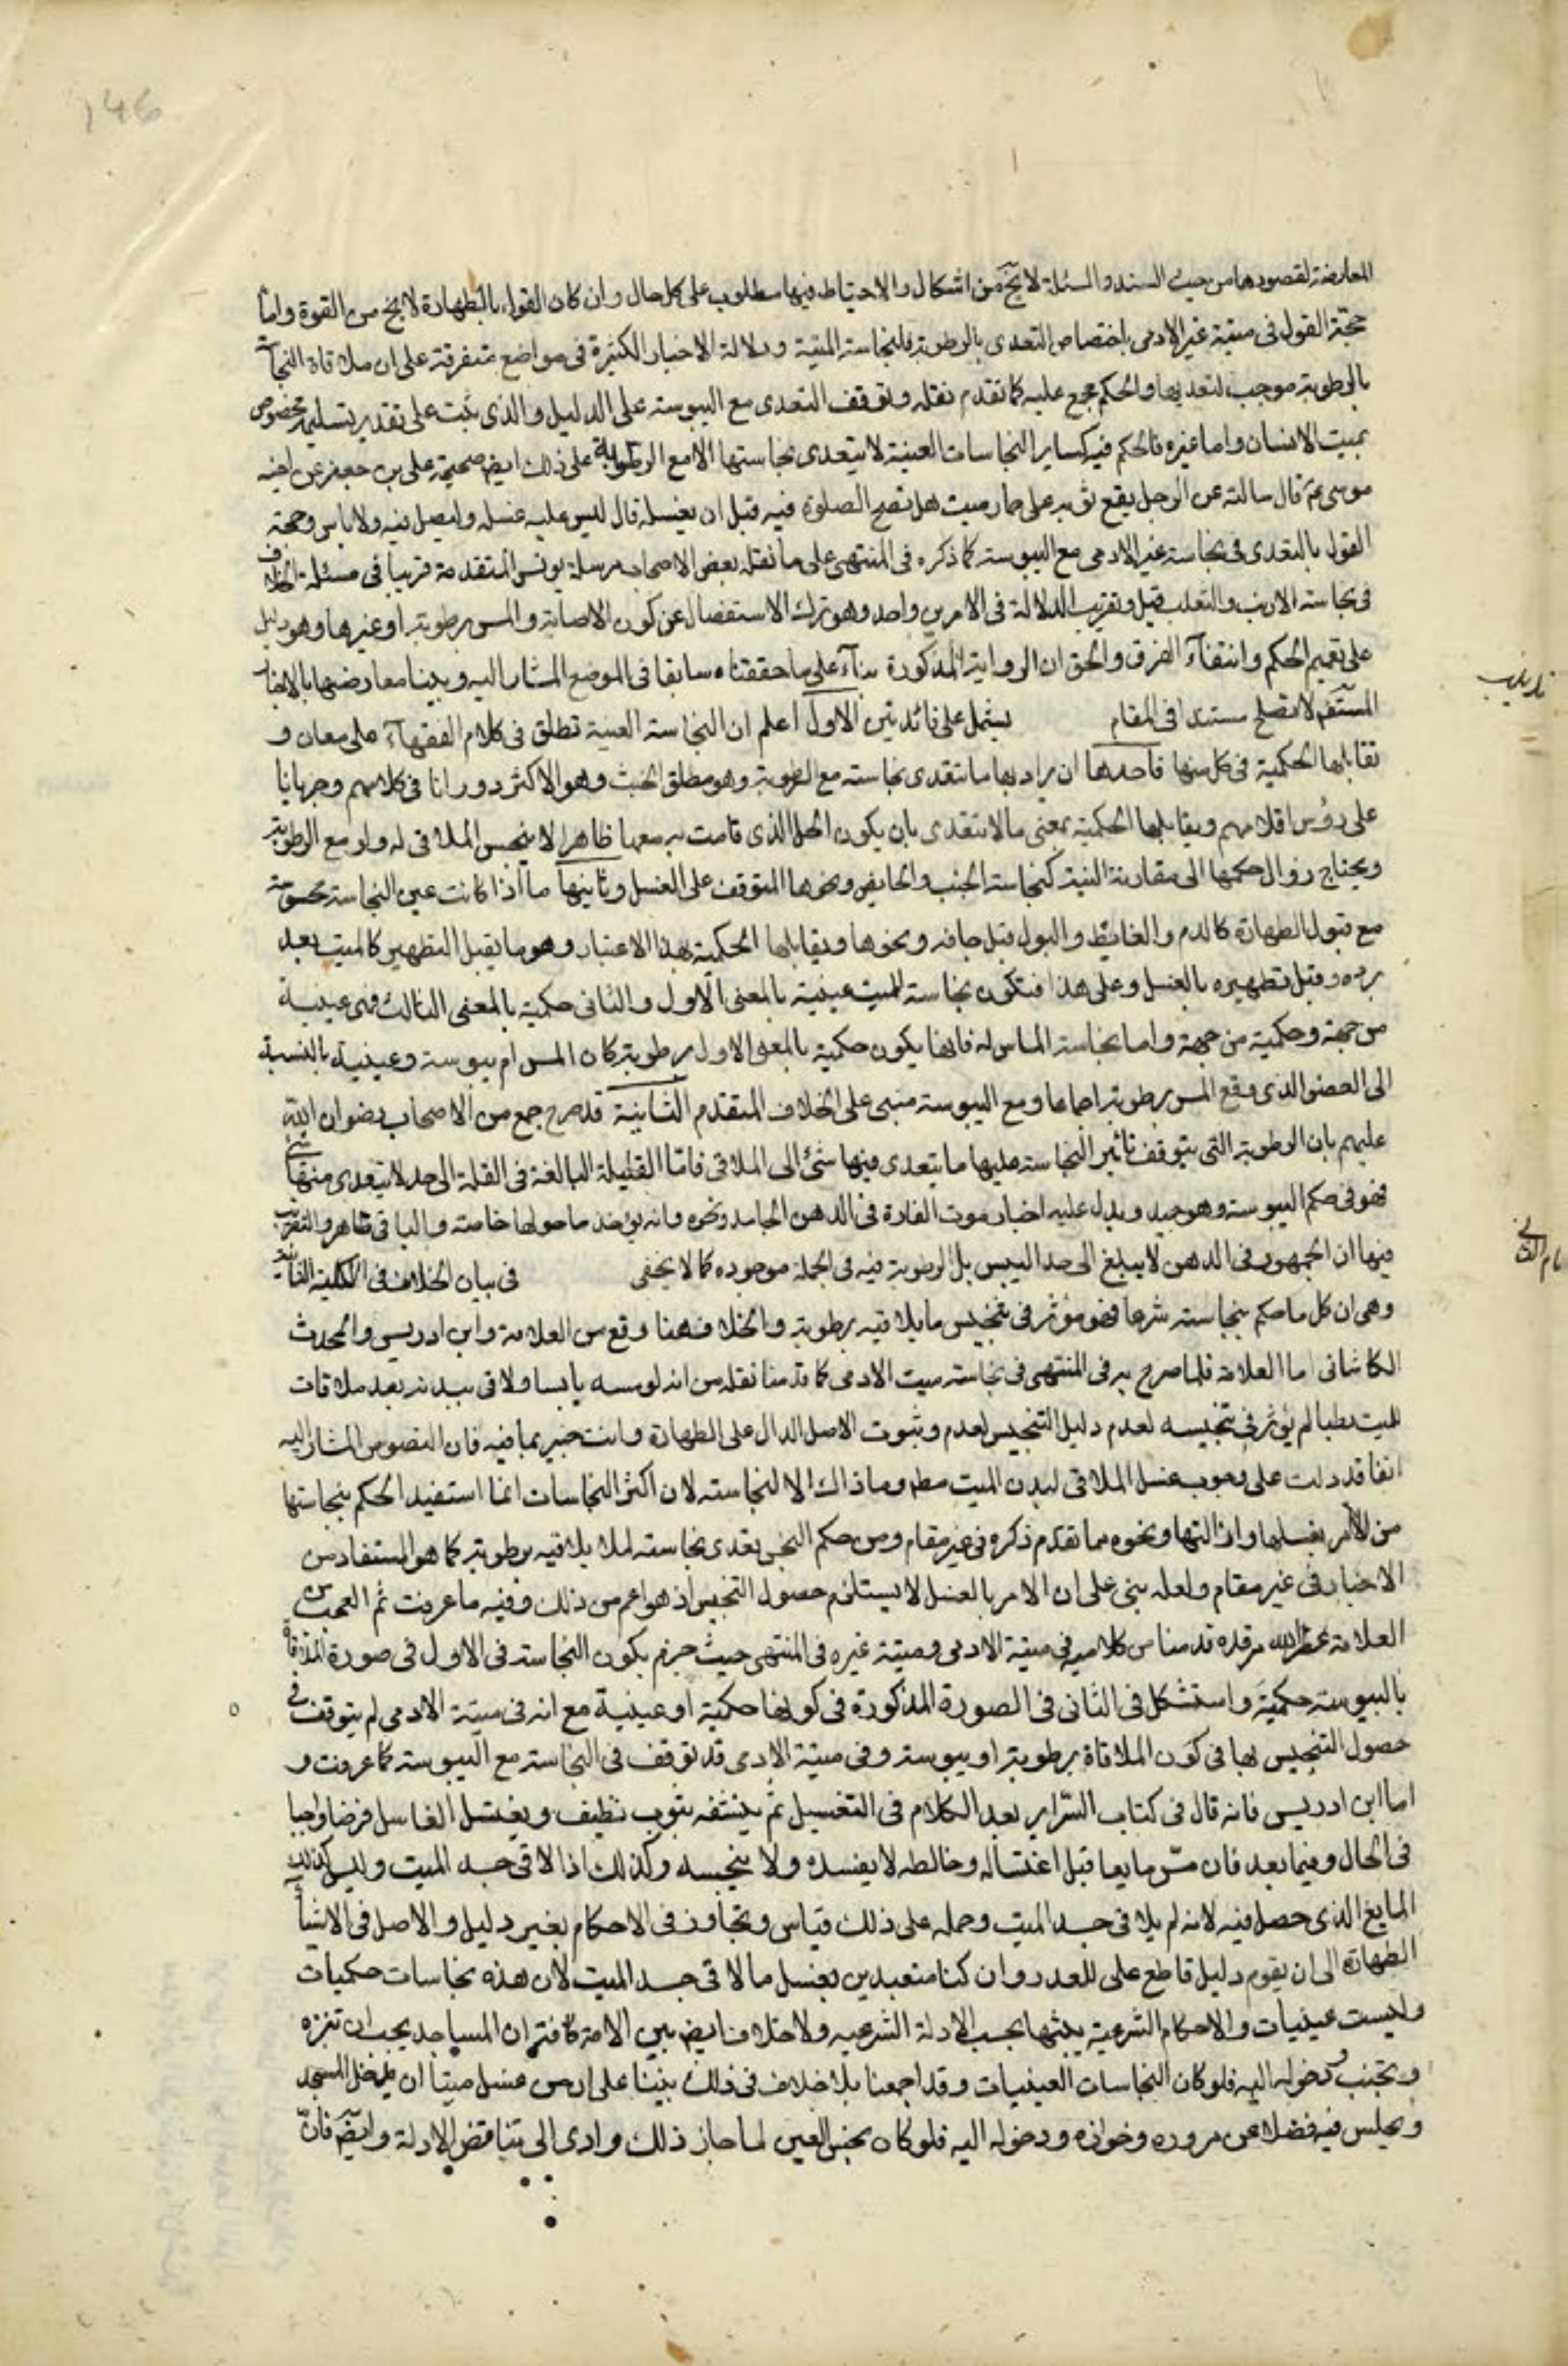 146
المعارضة لقصورها من حيث السند والمسئلة لا يخ من اشكال والاحتياط فيها مطلوب على كل حال وان كان القول بالطهارة لا يخ من القوة واما
حجة القول فى ميتة غير الادمى باختصاص التعدى بالرطوبة فلنجاسة الميتة ودلالة الاخبار الكثيرة فى مواضع متفرقة على ان ملاقاة النجاسة
بالرطوبة موجب لتعديها والحكم مجمع عليه كما تقدم نقله وتوقف التعدى مع اليبوسة على الدليل والذى يثبت على تقدير تسليمه مخصوص
بميت الانسان واما غيره فالحكم فيه كساير النجاسات العينية لا يتعدى نجاستها الا مع الرطوبة على ذلك ايض صحيحة على بن جعفر عن اخيه
موسى ع قال سالته عن الرجل يقع ثوبه على حمار ميت هل تصح الصلوة فيه قبل ان يغسله قال ليس عليه غسله وليصل فيه ولا باس وحجة
القول بالتعدى فى نجاسة غير الادمى مع اليبوسة كما ذكره فى المنتهى على ما نقله بعض الاصحاب مرسلة يونس المتقدمة قريبا فى مسئلة الخلاف
فى نجاسة الارنب والثعلب قيل وتقريب الدلالة فى الامرين واحد وهو ترك الاستفصال عن كون الاصابة والمس برطوبة او غيرها وهو دليل
على تعميم الحكم وانتفآء الفرق والحق ان الرواية المذكورة بنآء على ما حققناه سابقا فى الموضع المشار اليه وبينا معارضتها بالاخبار
لا تصلح مستندا فى المقام يشتمل على فائدتين الاول اعلم ان النجاسة العينية تطلق فى كلام الفقهآء على معان و
تذنيب
تقابلها الحكمية فى كل منها فاحدها ان يراد بها ما تتعدى نجاسته مع الرطوبة وهو مطلق الخبث وهو الاكثر دورانا فى كلامهم وجريانا
على رؤس اقلامهم ويقابلها الحكمية بمعنى ما لا تتعدى بان يكون المحل الذى قامت به معها ظاهرا لا ينجس الملاقى له ولو مع الرطوبة
ويحتاج زوال حكمها الى مقارنة النية كنجاسة الجنب والحايض ونحوها المتوقف على الغسل وثانيها ما اذا كانت عين النجاسة محسوسة
مع قبول الطهارة كالدم والغائط والبول قبل جفافه ونحوها ويقابلها الحكمية بهذا الاعتبار وهو ما يقبل التطهير كالميت بعد
برده وقبل تطهيره بالغسل وعلى هذا فتكون نجاسة الميت عينية بالمعنى الاول والثانى حكمية بالمعنى الثالث فهى عينية
من جهة وحكمية من جهة واما نجاسة الماس له فانها يكون حكمية بالمعنى الاول برطوبة كان المس ام بيبوسة وعينية بالنسبة
الى العضو الذى وقع المس برطوبة اجماعا ومع اليبوسة مبنى على الخلاف المتقدم الثانية قد صرح جمع من الاصحاب رضوان الله
عليهم بان الرطوبة التى يتوقف تاثير النجاسة عليها ما يتعدى فيها شئ الى الملاقى فامّا القليلة البالغة فى القلة الى حد لا يتعدى منها شئ
فهو فى حكم اليبوسة وهو جيد ويدل عليه اخبار موت الفارة فى الدهن الجامد ونحوه وانه يؤخذ ما حولها خاصة والباقى طاهر والتقريب
فيها ان الجمود فى الدهن لا يبلغ الى حد اليبس بل الرطوبة فيه فى الجملة موجوده كما لا يخفى فى بيان الخلاف فى الكلية الثانية
المقام الثانى
وهى ان كل ما حكم بنجاسته شرعا فهو مؤثر فى تنجيس ما يلاقيه برطوبة والخلاف هنا وقع من العلامة وابن ادريس والمحدث
الكاشانى اما العلامة فلما صرح به فى المنتهى فى نجاسة ميت الادمى كما قدمنا نقله من انه لو مسه يابسا ولاقى ببدنه بعد ملاقات
الميت رطبا لم يؤثر فى تنجيسه لعدم دليل التنجيس لعدم وثبوت الاصل الدال على الطهارة وانت خبير بما فيه فان النصوص المشار اليه
انفا قد دلت على وجوب غسل الملاقى لبدن الميت مطم وما ذاك الا لنجاسته لان اكثر النجاسات انما استفيد الحكم بنجاستها
من الامر بغسلها وازالتها ونحوه مما تقدم ذكره فى غير مقام ومن حكم النجس تعدى نجاسته لما يلاقيه برطوبة كما هو المستفاد من
الاخبار فى غير مقام ولعله بنى على ان الامر بالغسل لا يستلزم حصول التنجيس اذ هو اعم من ذلك وفيه ما عرفت ثم العجب من
العلامة عطر الله مرقده قدمنا من كلاميه فى ميتة الادمى وميتة غيره فى المنتهى حيث جزم بكون النجاسة فى الاول فى صورة الملاقاة
باليبوسة حكمية واستشكل فى الثانى فى الصورة المذكورة فى كونها حكمية او عينية مع انه فى ميتة الادمى لم يتوقف فى
حصول التنجيس بها فى كون الملاقاة برطوبة او بيبوسة وفى ميتة الادمى قد توقف فى النجاسة مع اليبوسة كما عرفت و
اما ابن ادريس فانه قال فى كتاب السّراير بعد الكلام فى التغسيل ثم ينشفه بثوب نظيف ويغتسل الغاسل فرضا واجبا
فى الحال وفيما بعد فان مسّ مايعا قبل اغتساله وخالطه لا يفسده ولا ينجسه وكذلك اذا لاقى جسد الميت وليس كذلك
المايع الذى حصل فيه لانه لم يلاقى جسد الميت وحمله على ذلك قياس وتجاوز فى الاحكام بغير دليل والاصل فى الاشيآء
الطهارة الى ان يقوم دليل قاطع على للعذر وان كنا متعبدين بغسل ما لاقى جسد الميت لان هذه نجاسات حكميات
وليست عينيات والاحكام الشرعية يثبتها بحسب الادلة الشرعيه ولا خلاف ايض بين الامة كافة ان المساجد يجب ان تنزه
وتجنب و دخوله اليه فلو كان النجاسات العينيات وقد اجمعنا بلا خلاف فى ذلك بيننا على ان من غسل ميتا ان يدخل المسجد
ويجلس فيه فضلا عن مروره وجوازه ودخوله اليه فلو كان نجس العين لما جاز ذلك وادى الى تناقض الادلة وايضا فانّ